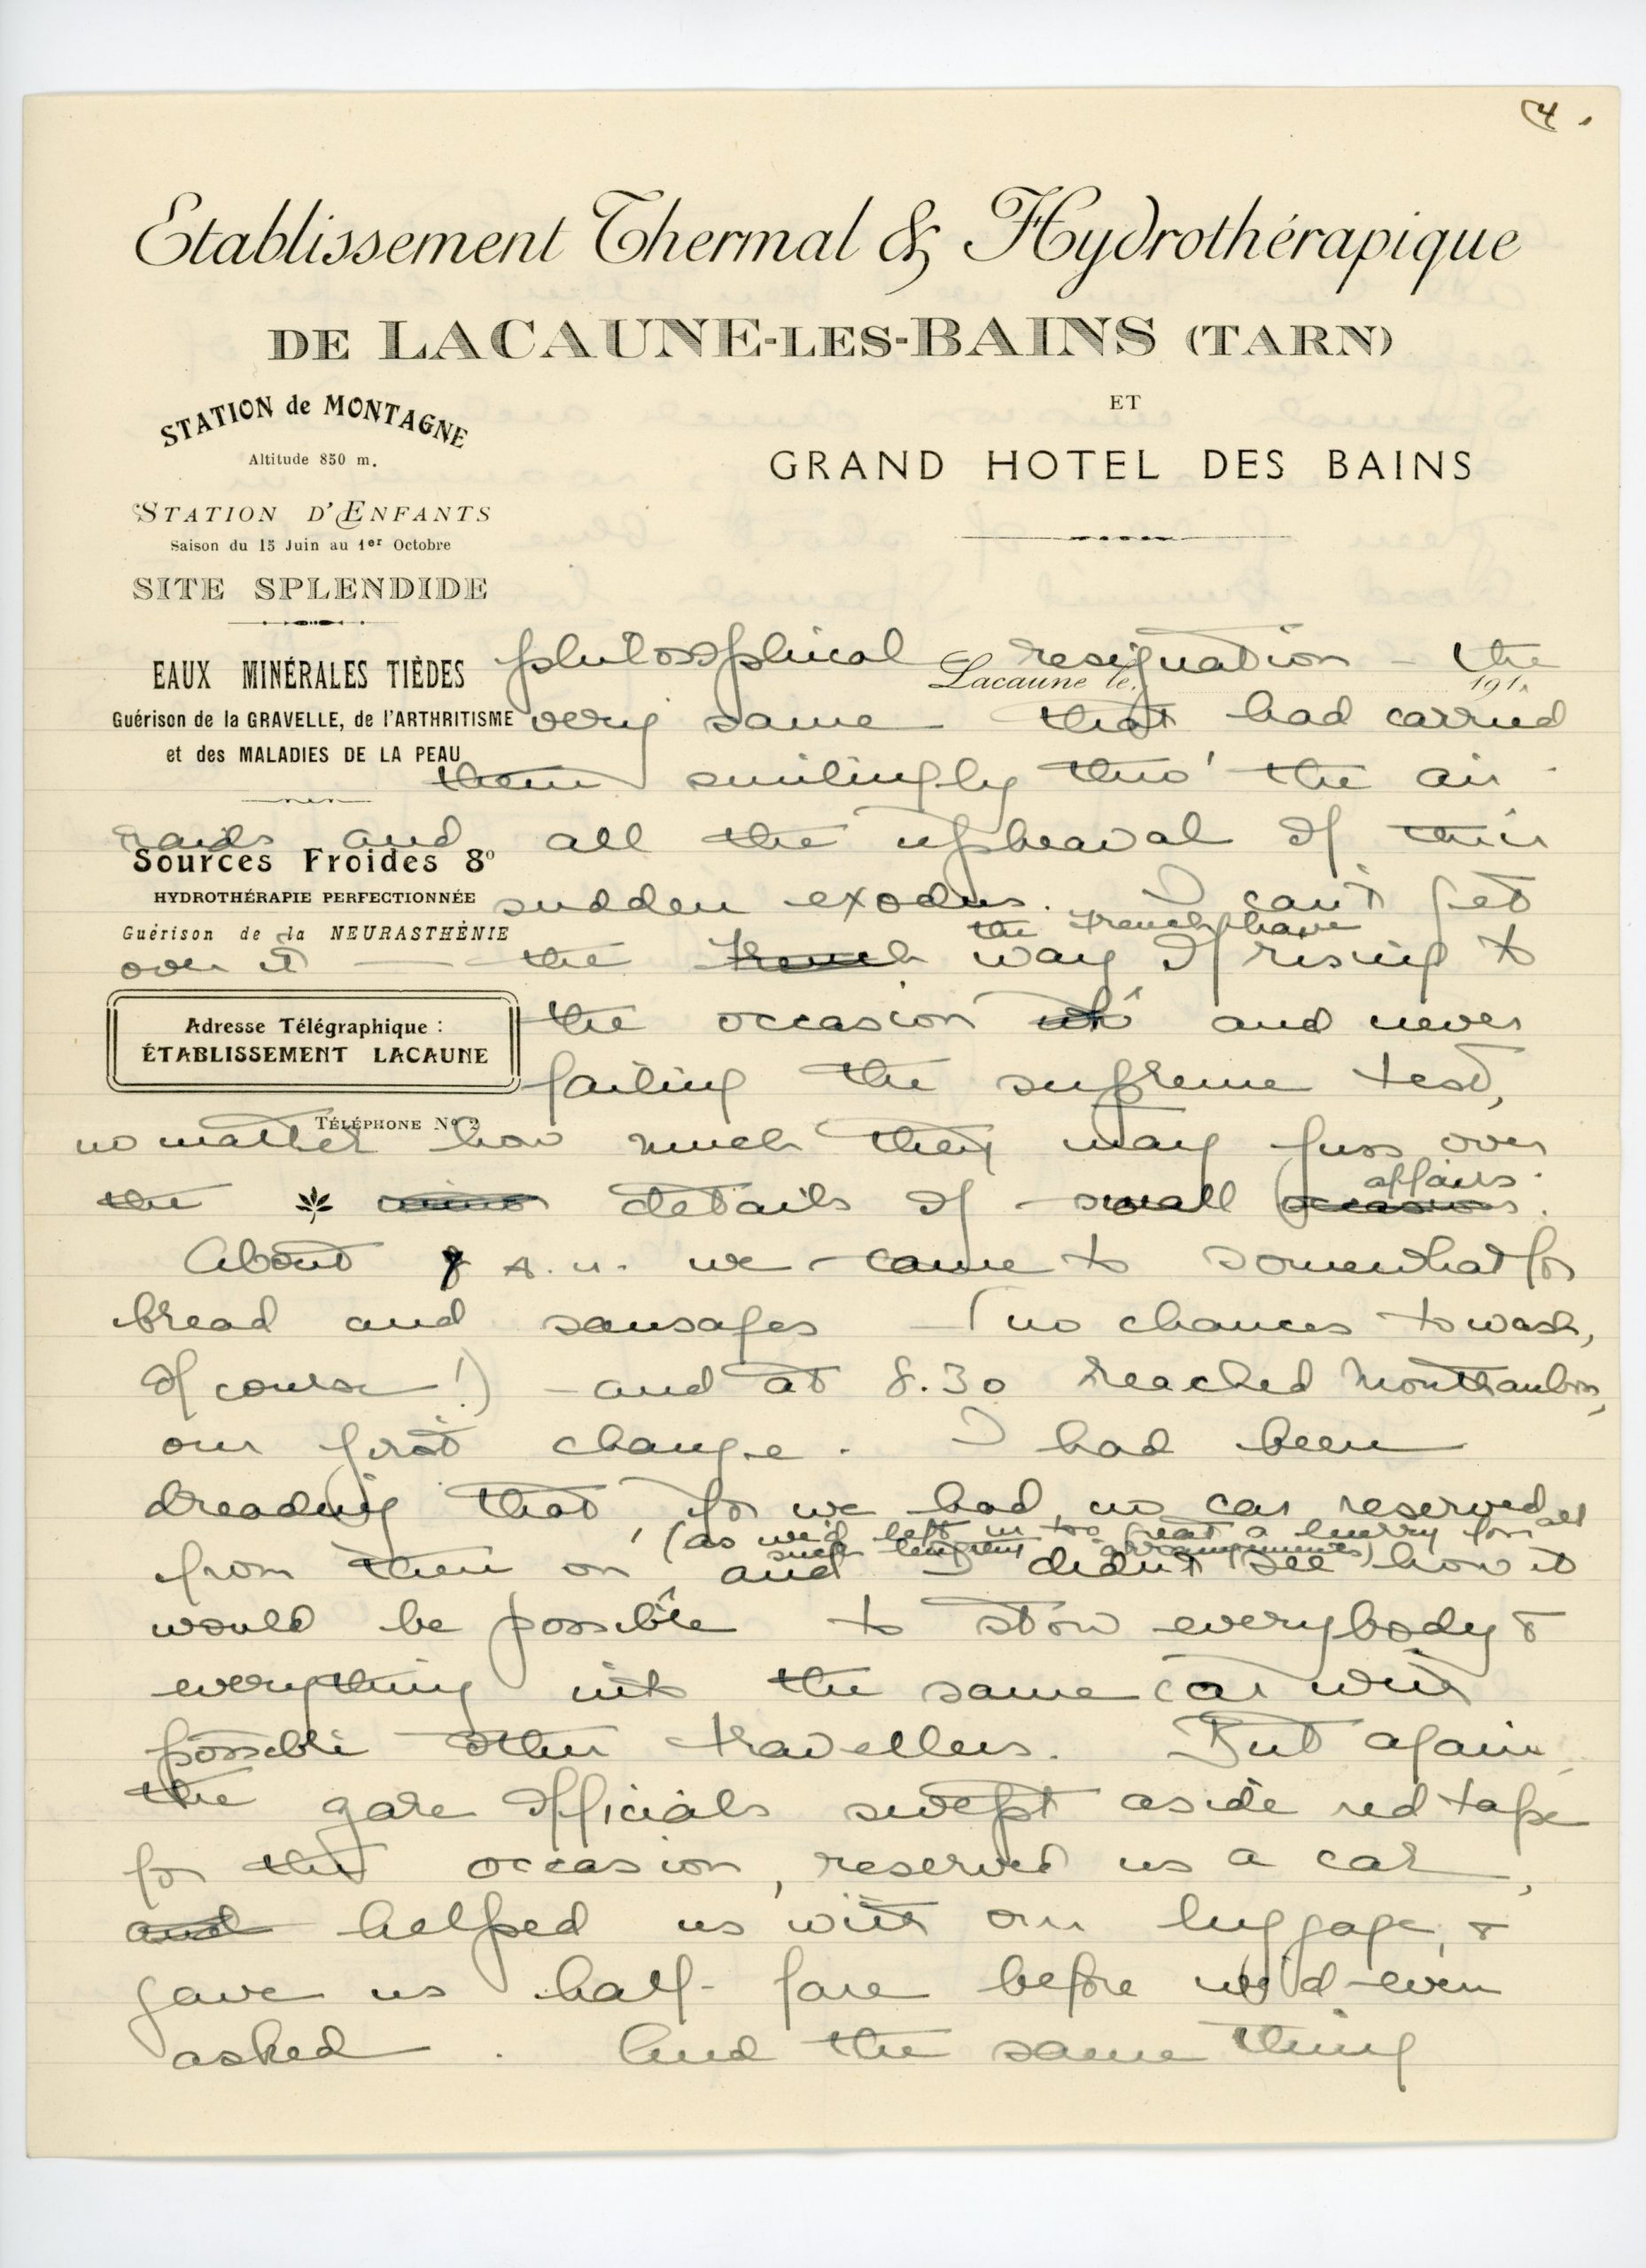 4.
Etablissement Thermal & Hydrothérapique
DE LACAUNE-LES-BAINS (TARN)
STATION de MONTAGNE
Altitude 850 m.
STATION D'ENFANTS
Saison du 15 Juin au 1er Octobre
SITE SPLENDIDE
EAUX MINÉRALES TIÈDES
Guérison de la GRAVELLE, de l'ARTHRITISME
et des MALADIES DE LA PEAU
Sources Froides 8°
HYDROTHÉRAPIE PERFECTIONNÉE
Guérison de la NEURASTHÉNIE
Adresse Télégraphique :
ÉTABLISSEMENT LACAUNE
TÉLÉPHONE No 2
ET
GRAND HOTEL DES BAINS
Lacaune le, 191.
philosophical resignation - the
very same that had carried
them smilingly thro' the air
raids and all the upheaval of their
sudden exodus. I can't get
over it — the French way the French have of rising to
the occasion and never
failing the supreme test,
no matter how much they may fuss over
the details of small occasions affairs.
About 7 A.M. we came to somewhat for
bread and sausages - (no chances to wash,
of course!) - and at 8.30 reached Monthauban,
our first change. I had been
dreading that, for we had no car reserved
from then on (as we'd left in too great a hurry for all
such lengthy arrangements) and I didn't see how it
would be possible to stow everybody &
everything into the same car with
possible other travellers. But again
the gare officials swept aside red tape
for the occasion, reserved us a car,
and helped us with our luggage, &
gave us half-fare before we'd even
asked. And the same thing